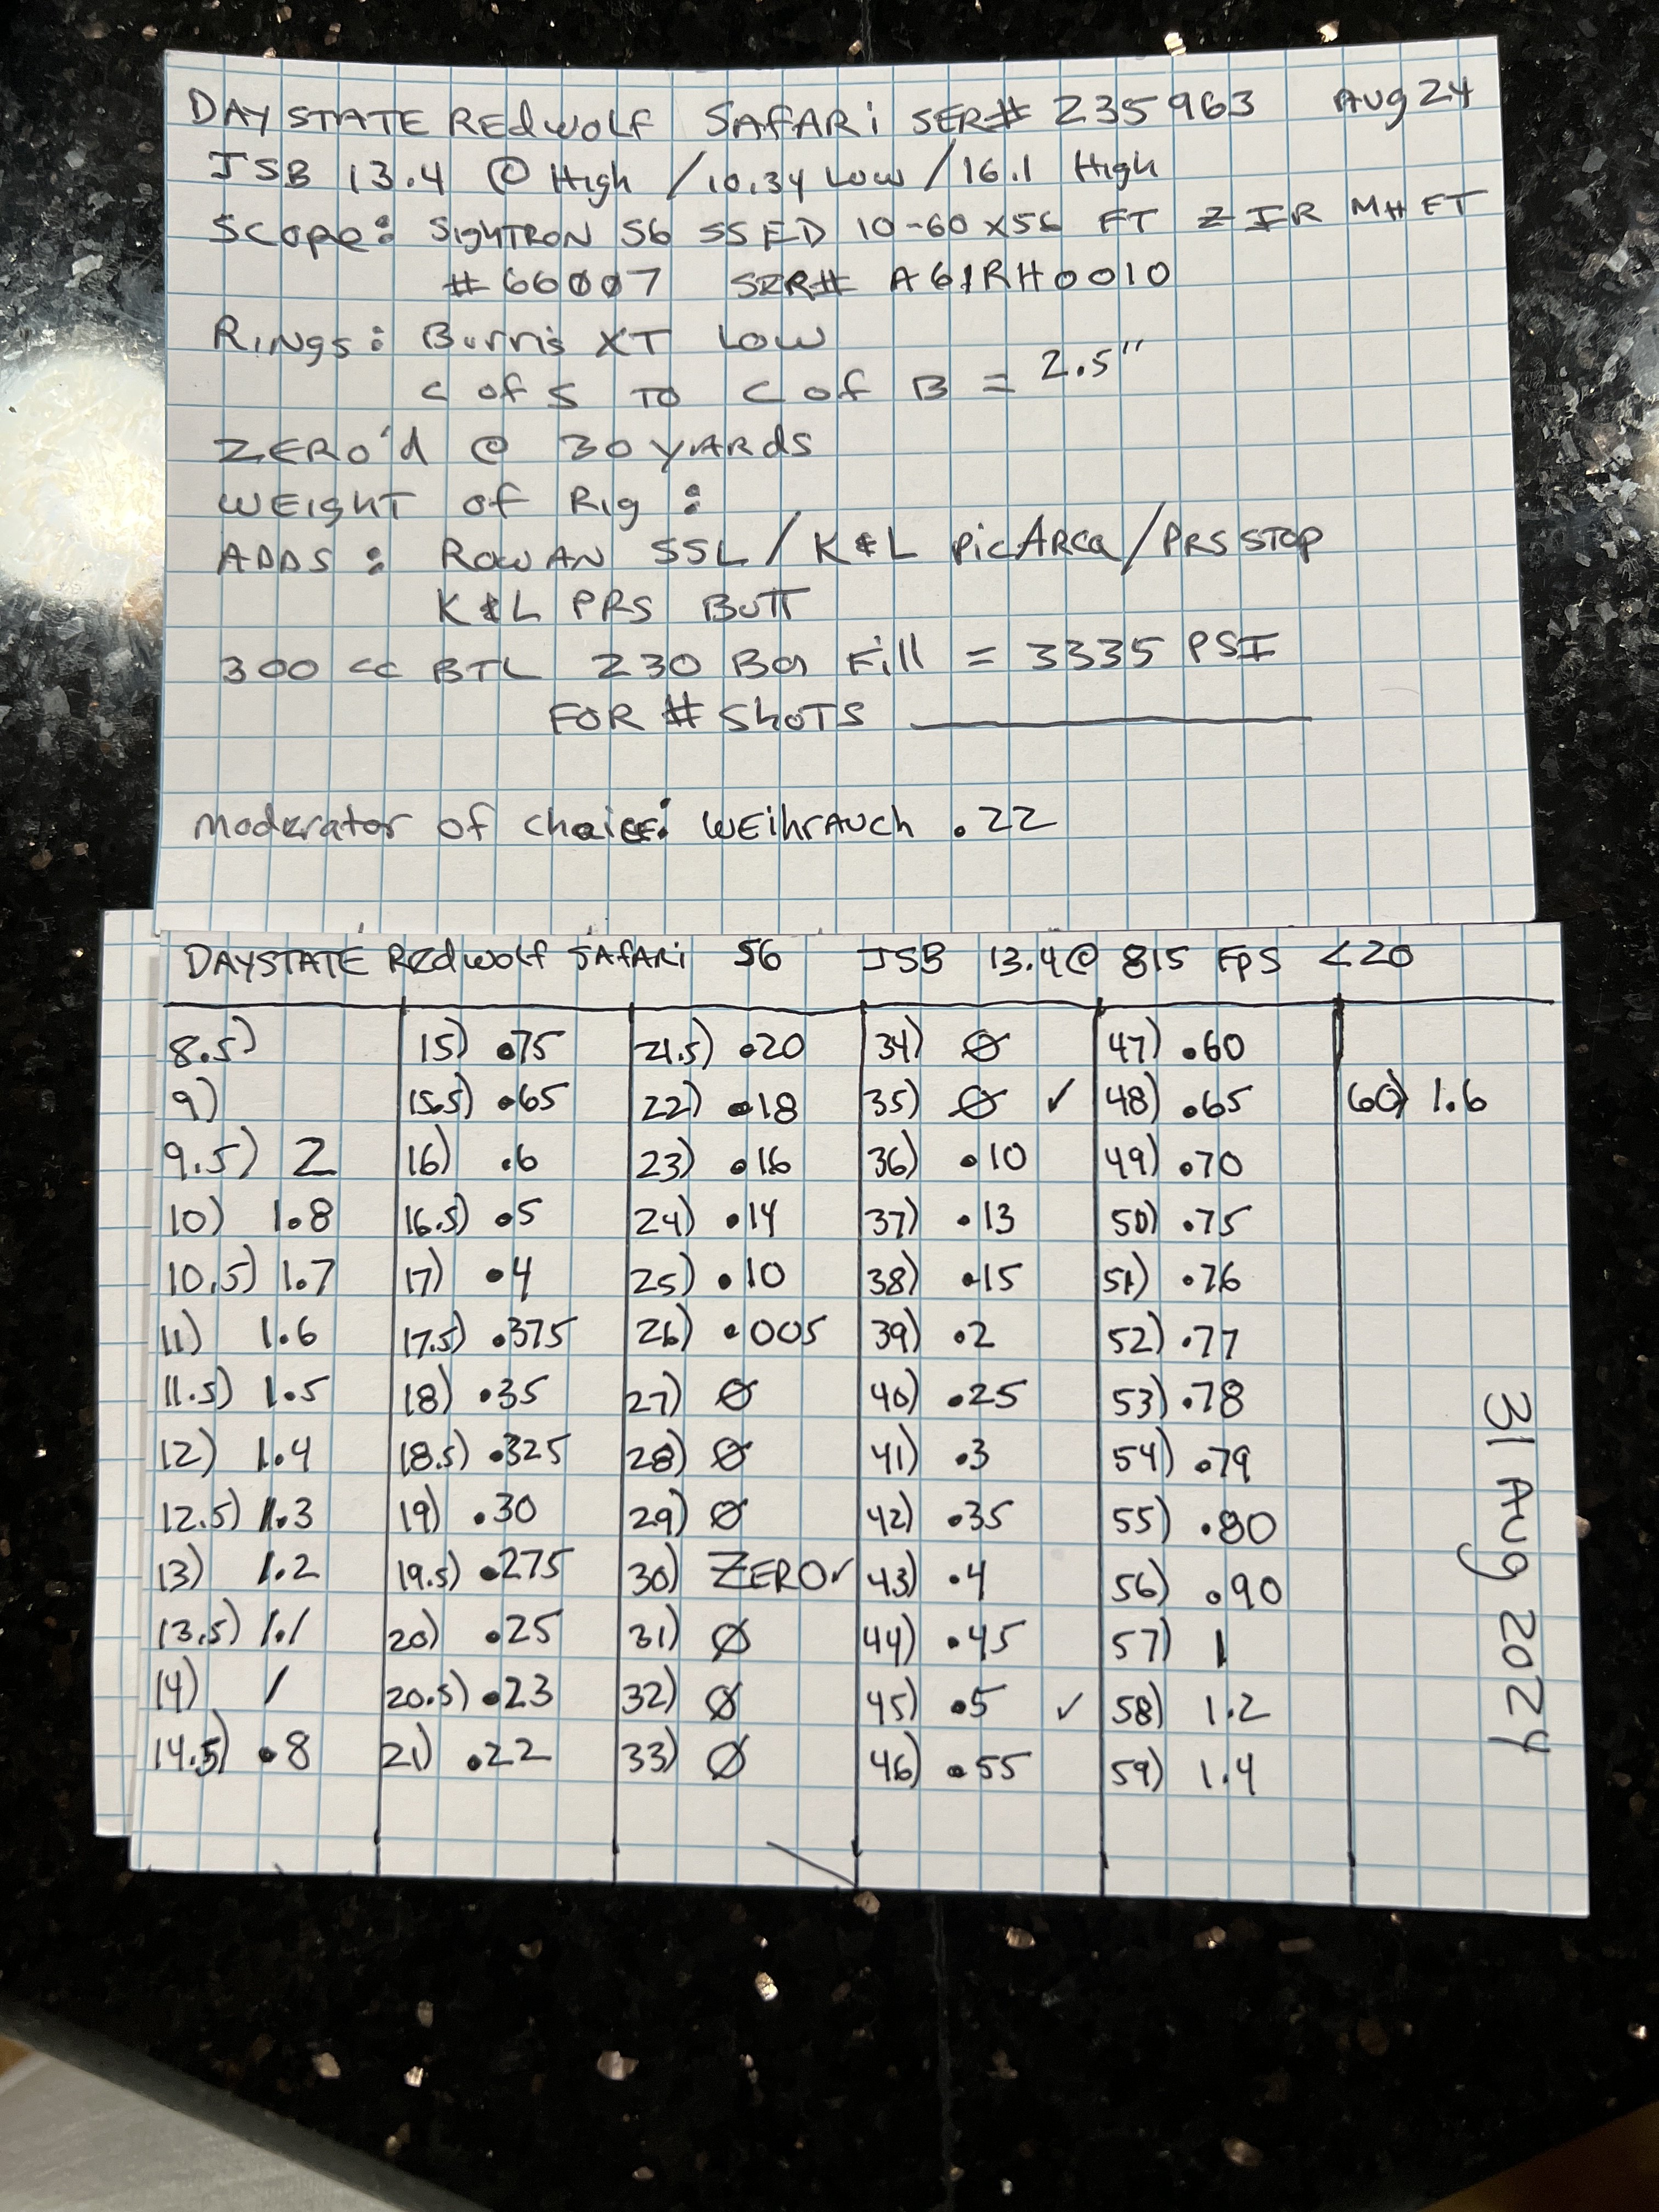 DAYSTATE REdwolf SAFARi SER# 235963 Aug 24
JSB 13.4 @ High / 10.34 Low / 16.1 High
Scope: SigHTRON S6 SS ED 10-60 x 56 FT Z IR MH FT
#66007 SER# A61RH0010
RiNgs: Burris XT Low
C of S TO C of B = 2.5"
ZERO'd @ 30 YARds
WEIgHT of Rig:
ADDS: ROWAN SSL / K&L picARca / PRS STOP
K&L PRS BuTT
300 cc BTL 230 Bar Fill = 3335 PSI
FOR # ShoTS
Moderator of choice: WEihrAuch .22
DAYSTATE Redwolf SAfARi S6 JSB 13.4 @ 815 FpS <20
8.5) 15) .75 21.5) .20 34) Ø 47) .60
9) 15.5) .65 22) .18 35) Ø ✓ 48) .65 60) 1.6
9.5) 2 16) .6 23) .16 36) .10 49) .70
10) 1.8 16.5) .5 24) .14 37) .13 50) .75
10.5) 1.7 17) .4 25) .10 38) .15 51) .76
11) 1.6 17.5) .375 26) .005 39) .2 52) .77
11.5) 1.5 18) .35 27) Ø 40) .25 53) .78
12) 1.4 18.5) .325 28) Ø 41) .3 54) .79
12.5) 1.3 19) .30 29) Ø 42) .35 55) .80
13) 1.2 19.5) .275 30) ZERO ✓ 43) .4 56) .90
13.5) 1.1 20) .25 31) Ø 44) .45 57) 1
14) 1 20.5) .23 32) Ø 45) .5 ✓ 58) 1.2
14.5) .8 21) .22 33) Ø 46) .55 59) 1.4
31 Aug 2024